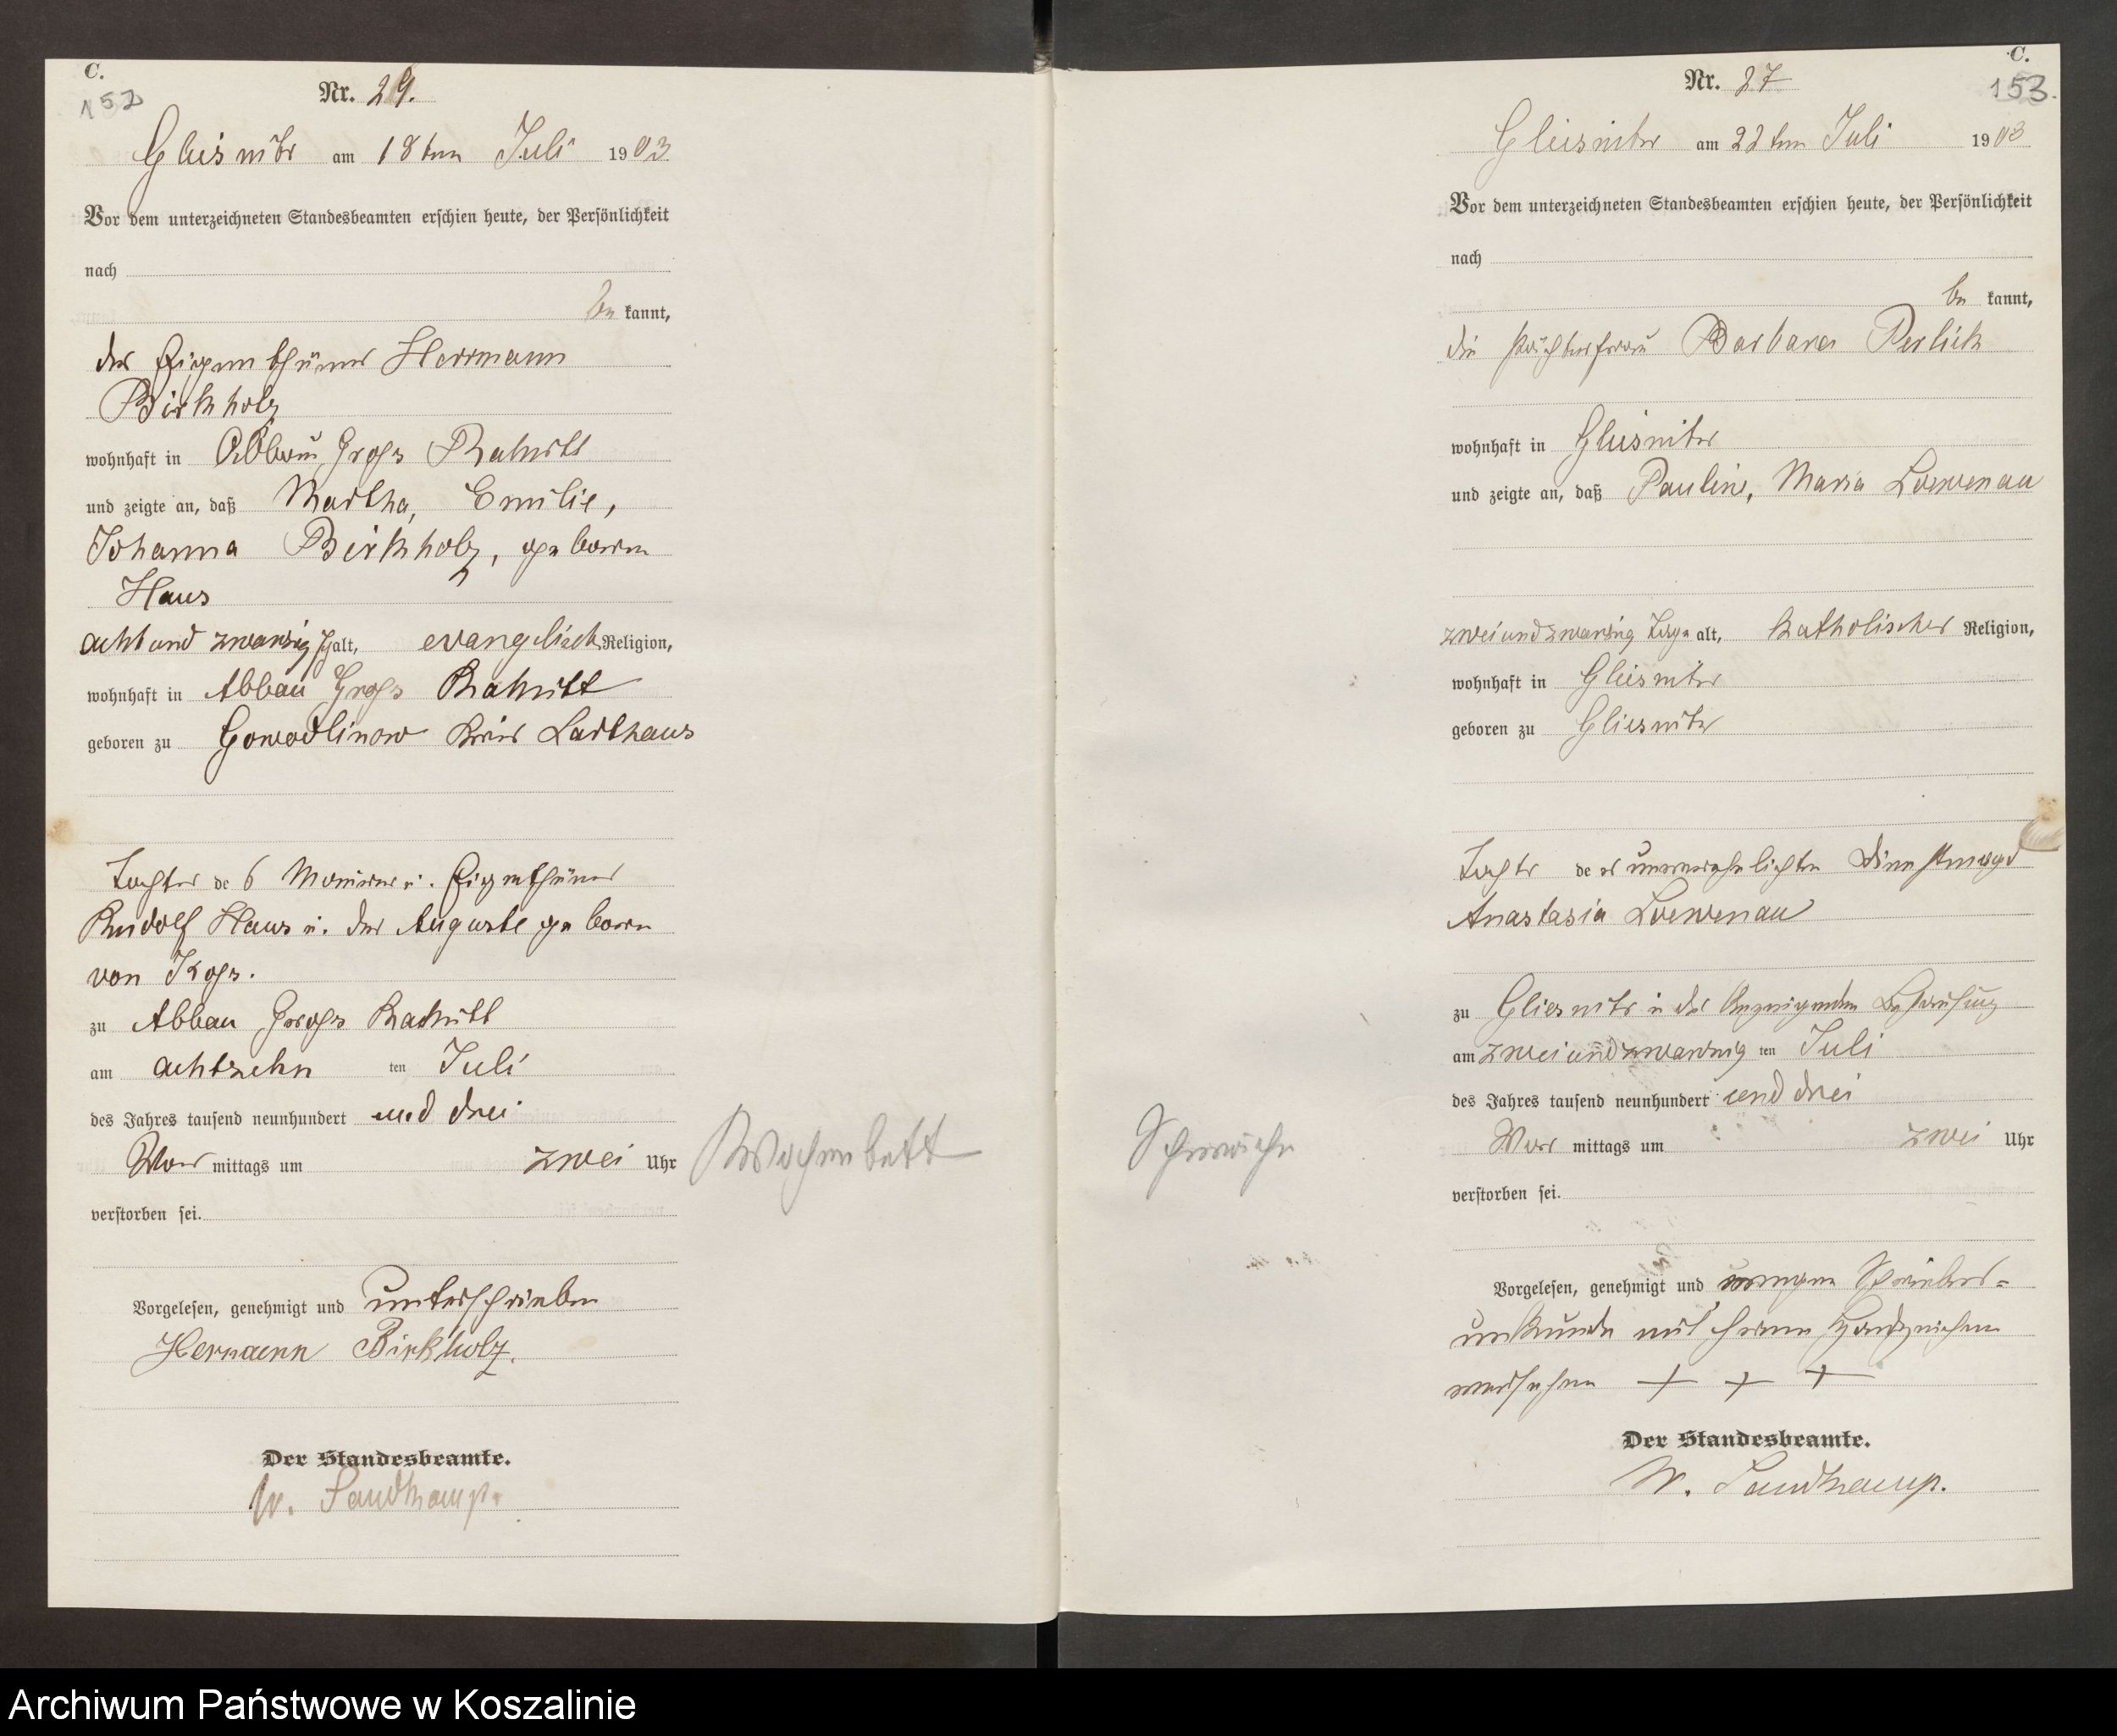 C.
152
Nr. 29.
Gliesnitz am 18ten Juli 1903
Vor dem unterzeichneten Standesbeamten erschien heute, der Persönlichkeit
nach
be kannt,
der Eigenthümer Herrmann
Birkholz
wohnhaft in Abbau Gross Rakitt
und zeigte an, daß Martha, Emilie,
Johanna Birkholz, geboren
Haus
acht und zwanzig J alt, evangelisch Religion,
wohnhaft in Abbau Gross Rakitt
geboren zu Gowodlinow Kreis Carthaus
Tochter de s Eigenthümer
Rudolf Haus u. der Auguste geboren
von
zu Abbau Gross Rakitt
am achtzehn ten Juli
des Jahres tausend neunhundert und drei
Vor mittags um zwei Uhr
verstorben sei.
Vorgelesen, genehmigt und unterschrieben
Hermann Birkholz.
Der Standesbeamte.
W. Sandkamp.
Wochenbett
C.
153.
Nr. 27
Gliesnitz am 22ten Juli 1903
Vor dem unterzeichneten Standesbeamten erschien heute, der Persönlichkeit
nach
be kannt,
die Pächterfrau Barbara Perlick
wohnhaft in Gliesnitz
und zeigte an, daß Pauline, Maria Loewenau
zweiundzwanzig Tage alt, katholischer Religion,
wohnhaft in Gliesnitz
geboren zu Gliesnitz
Tochter de er unverehelichten Dienstmagd
Anastasia Loewenau
zu Gliesnitz in der Anzeigenden Behausung
am zweiundzwanzig ten Juli
des Jahres tausend neunhundert und drei
Vor mittags um zwei Uhr
verstorben sei.
Vorgelesen, genehmigt und wegen Schreibens-
unkunde mit ihrem Handzeichen
versehen + + +
Der Standesbeamte.
W. Sandkamp.
Schwäche
Archiwum Państwowe w Koszalinie